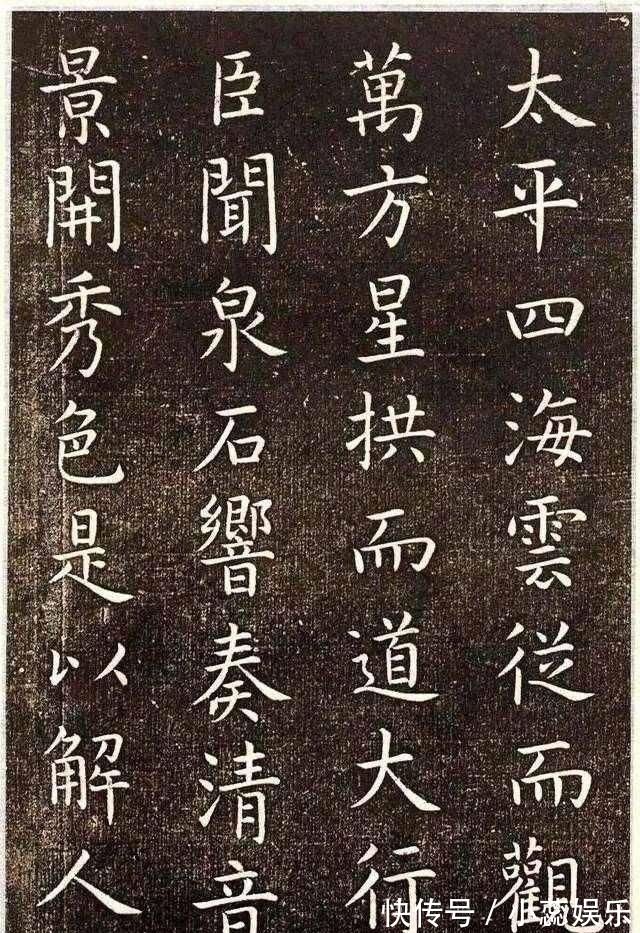 太平四海雲從而觀
萬方星拱而道大行
臣聞泉石響奏清音
景開秀色是以解人
快传号／小蕊娱乐